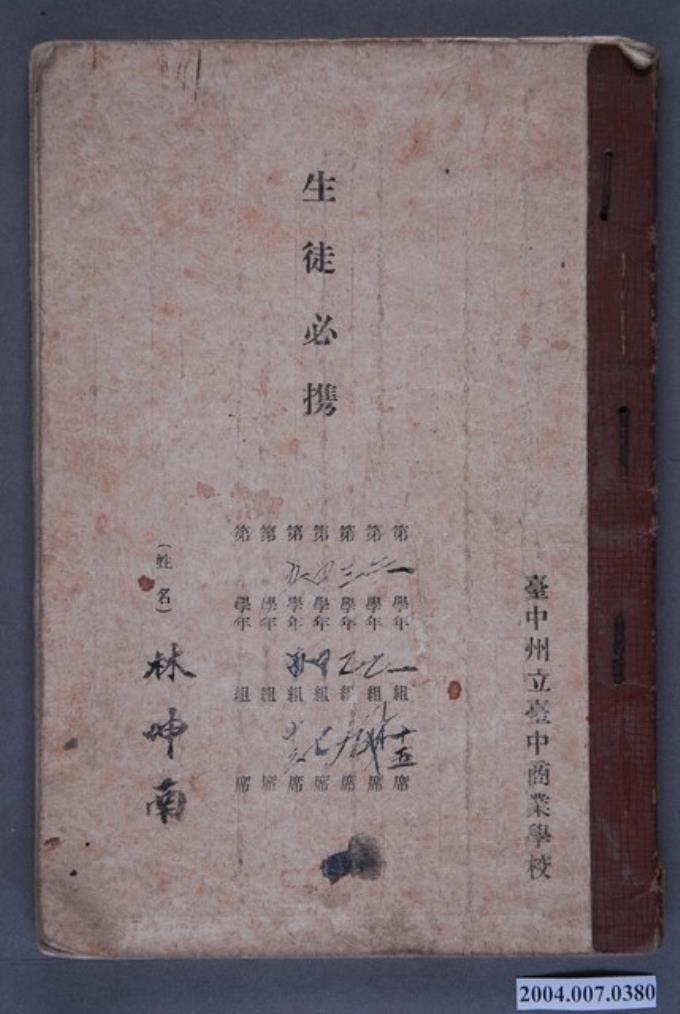 臺中州立臺中商業學校
生徒必携
第一學年一組十五席
第二學年 組 席
第三學年 組 席
第四學年 組 席
第五學年 組 席
第 學年 組 席
第 學年 組 席
（姓名）林坤南
2004.007.0380